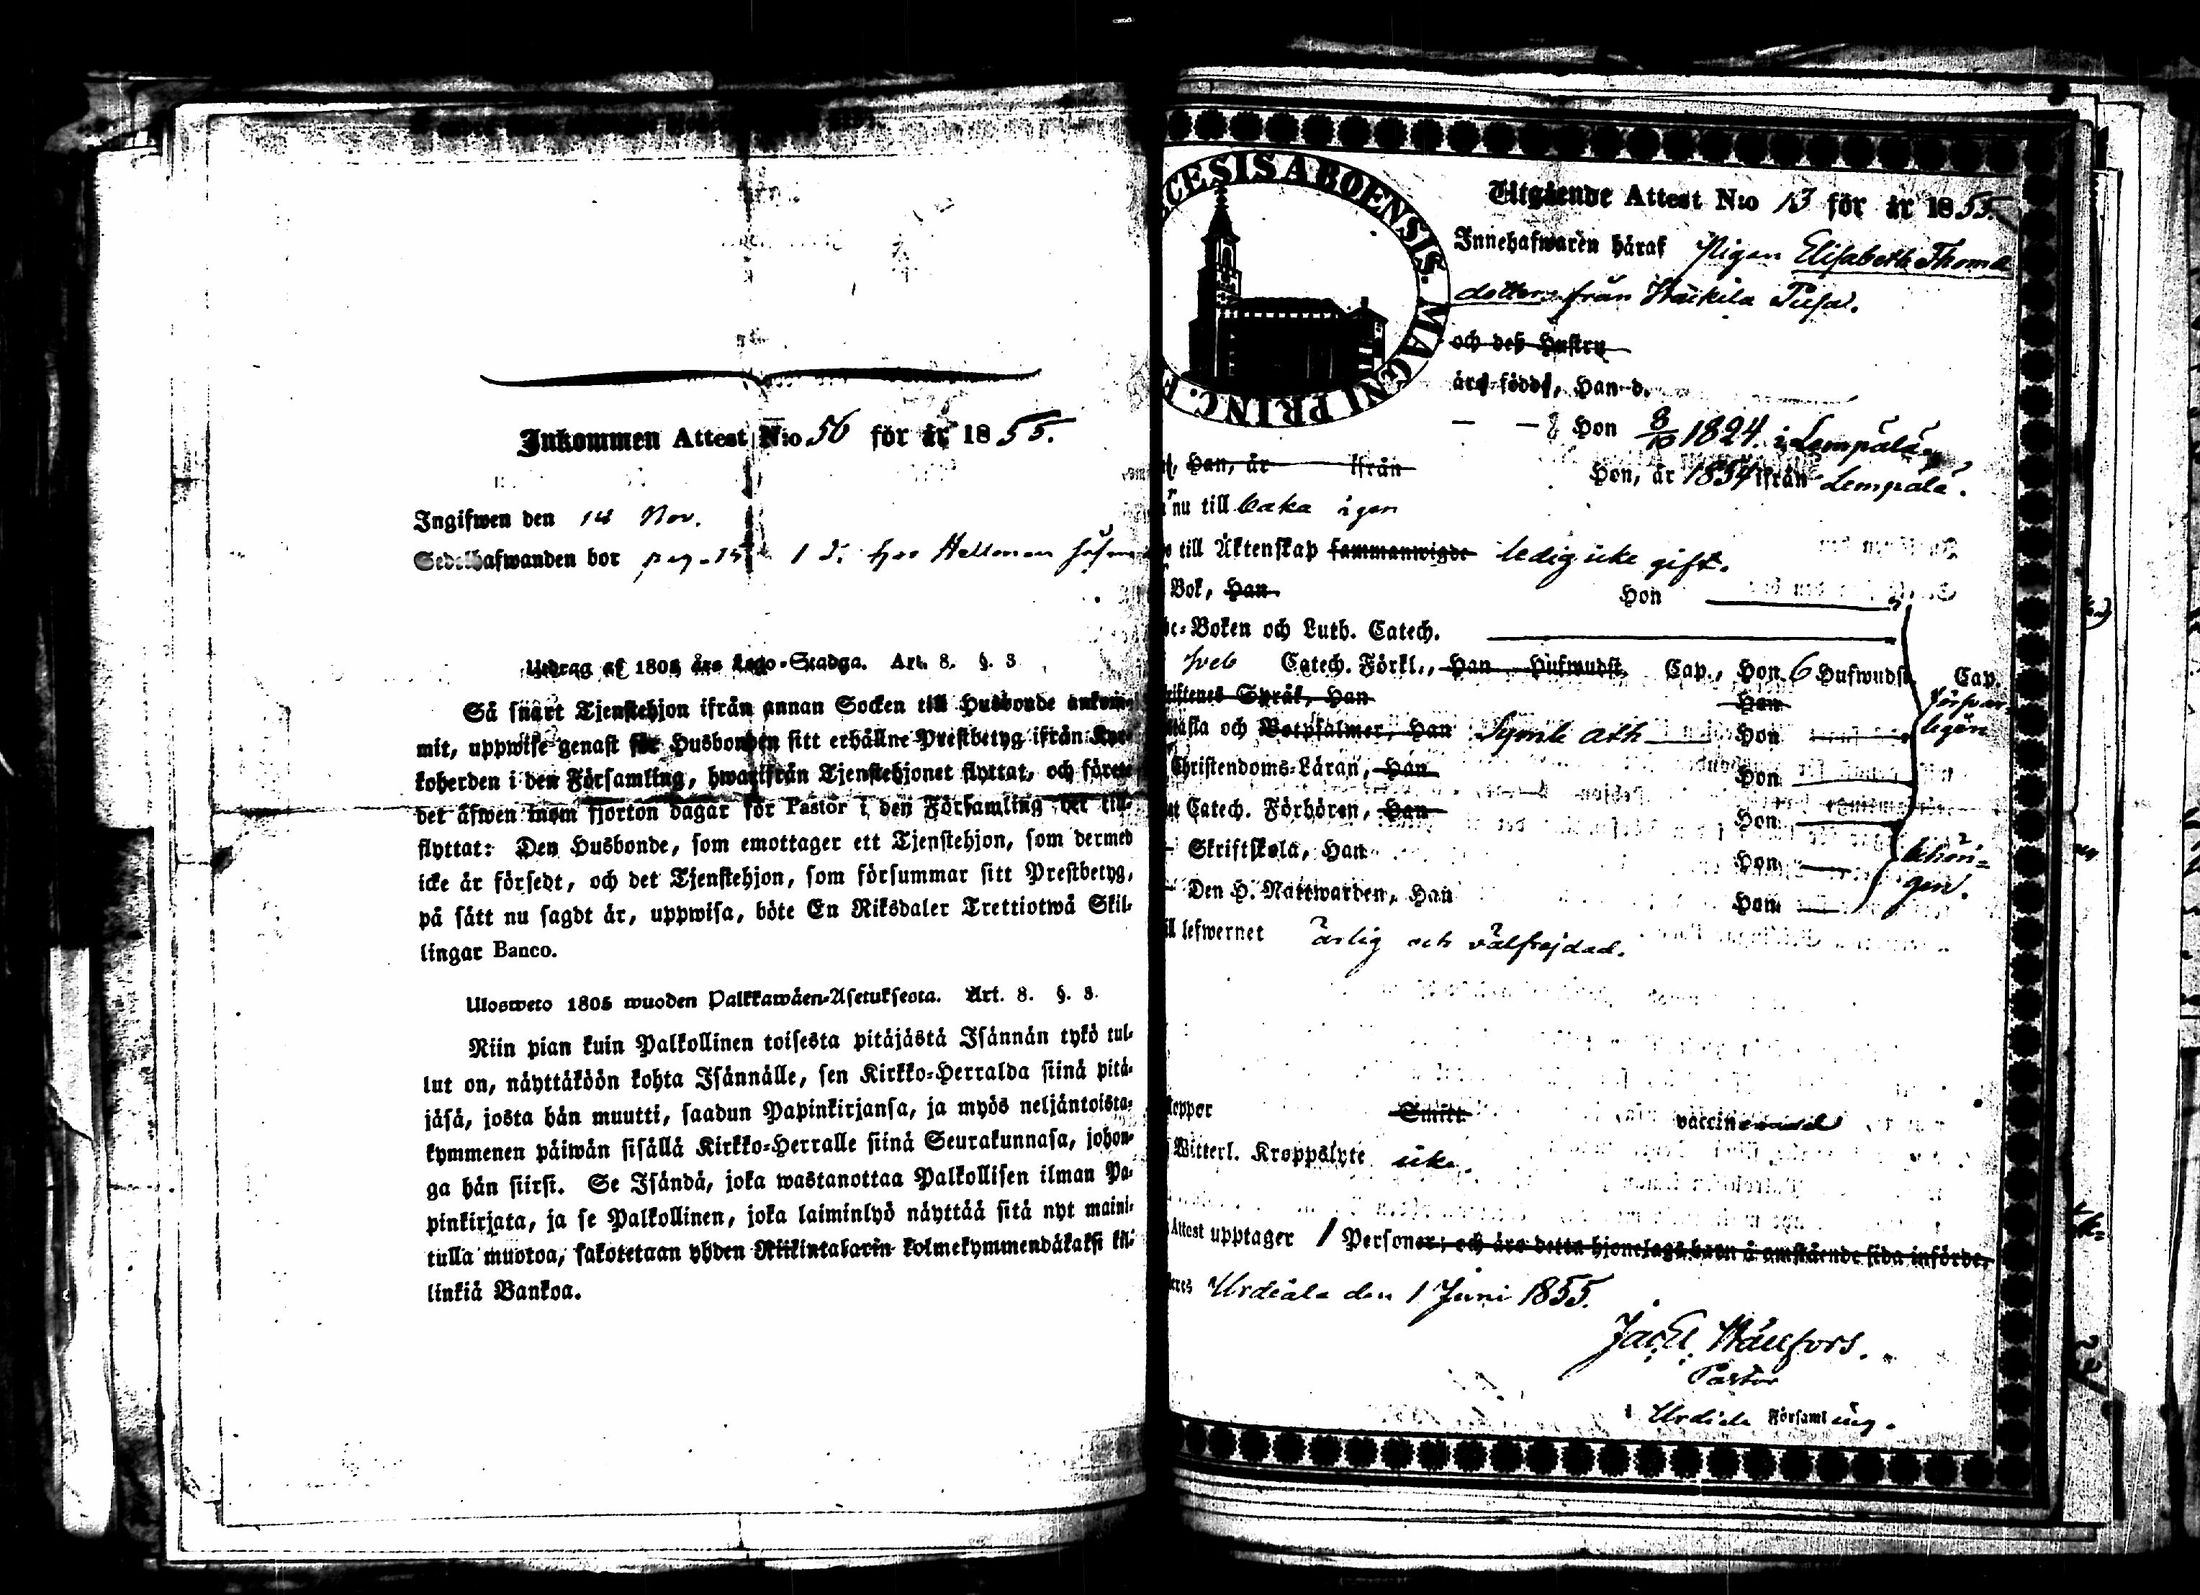 Inkommen Attest N:o 56 för år 1855.
Ingifwen den 14 Nov.
Sedelhafwanden bor pag. 15 1 d. hos Hellman
Utdrag af 1805 års Lego-Stadga. Art. 8. §. 3
Så snart Tjenstehjon ifrån annan Socken till Husbonde ankom-
mit, uppwise genast för Husbonden sitt erhållne Prestbetyg ifrån Kyr-
koherden i den Församling, hwarifrån Tjenstehjonet flyttat, och förete
det äfwen inom fjorton dagar för Pastor i den Församling det till-
flyttat: Den Husbonde, som emottager ett Tjenstehjon, som dermed
icke är försedt, och det Tjenstehjon, som försummar sitt Prestbetyg,
på sätt nu sagdt är, uppwisa, böte En Riksdaler Trettiotwå Skil-
lingar Banco.
Ulosweto 1805 wuoden Palkkawäen-Asetuksesta. Art. 8. §. 3.
Niin pian kuin Palkollinen toisesta pitäjästä Isännän tykö tul-
lut on, näyttäköön kohta Isännälle, sen Kirkko-Herralda siinä pitä-
jäsä, josta hän muutti, saadun Papinkirjansa, ja myös neljäntoista-
kymmenen päiwän sisällä Kirkko-Herralle siinä Seurakunnasa, johon-
ga hän siirsi. Se Isändä, joka wastanottaa Palkollisen ilman Pa-
pinkirjata, ja se Palkollinen, joka laiminlyö näyttää sitä nyt maini-
tulla muotoa, sakotetaan yhden Riikintalarin kolmekymmendäkaksi kil-
linkiä Bankoa.
CESIS ABOENSIS. MAGNI PRINC. F
Utgående Attest N:o 13 för år 1855.
Innehafwaren häraf Pigan Elisabeth Thoma
dotter från Haikila Pusa.
och deß Hustru
äro födde, Han d.
Hon 8/10 1824 i Lempälä
Han, år ifrån Hon, år 1854 ifrån Lempälä.
nu till baka igen
till Äktenskap sammanwigde ledig icke gift.
Bok, Han Hon
Boken och Luth. Catech.
Catech. Förkl., Han Hufwudst. Cap., Hon 6 Hufwudst. Cap.
Språk, Han Hon försvar-
och Botpsalmer, Han Symb. Ath Hon ligen
Christendoms-Läran, Han Hon
Catech. Förhören, Han Hon
Skriftskola, Han Hon behöri-
Den H. Nattwarden, Han Hon gen.
lefwernet ärlig och välfrejdad.
koppor Smitt vaccinerad
Witterl. Kroppslyte icke.
Attest upptager 1 Personer; och äro detta hjonelags barn å omstående sida införde.
Urdiala den 1 Juni 1855.
Pastor
i Urdiala Församling.